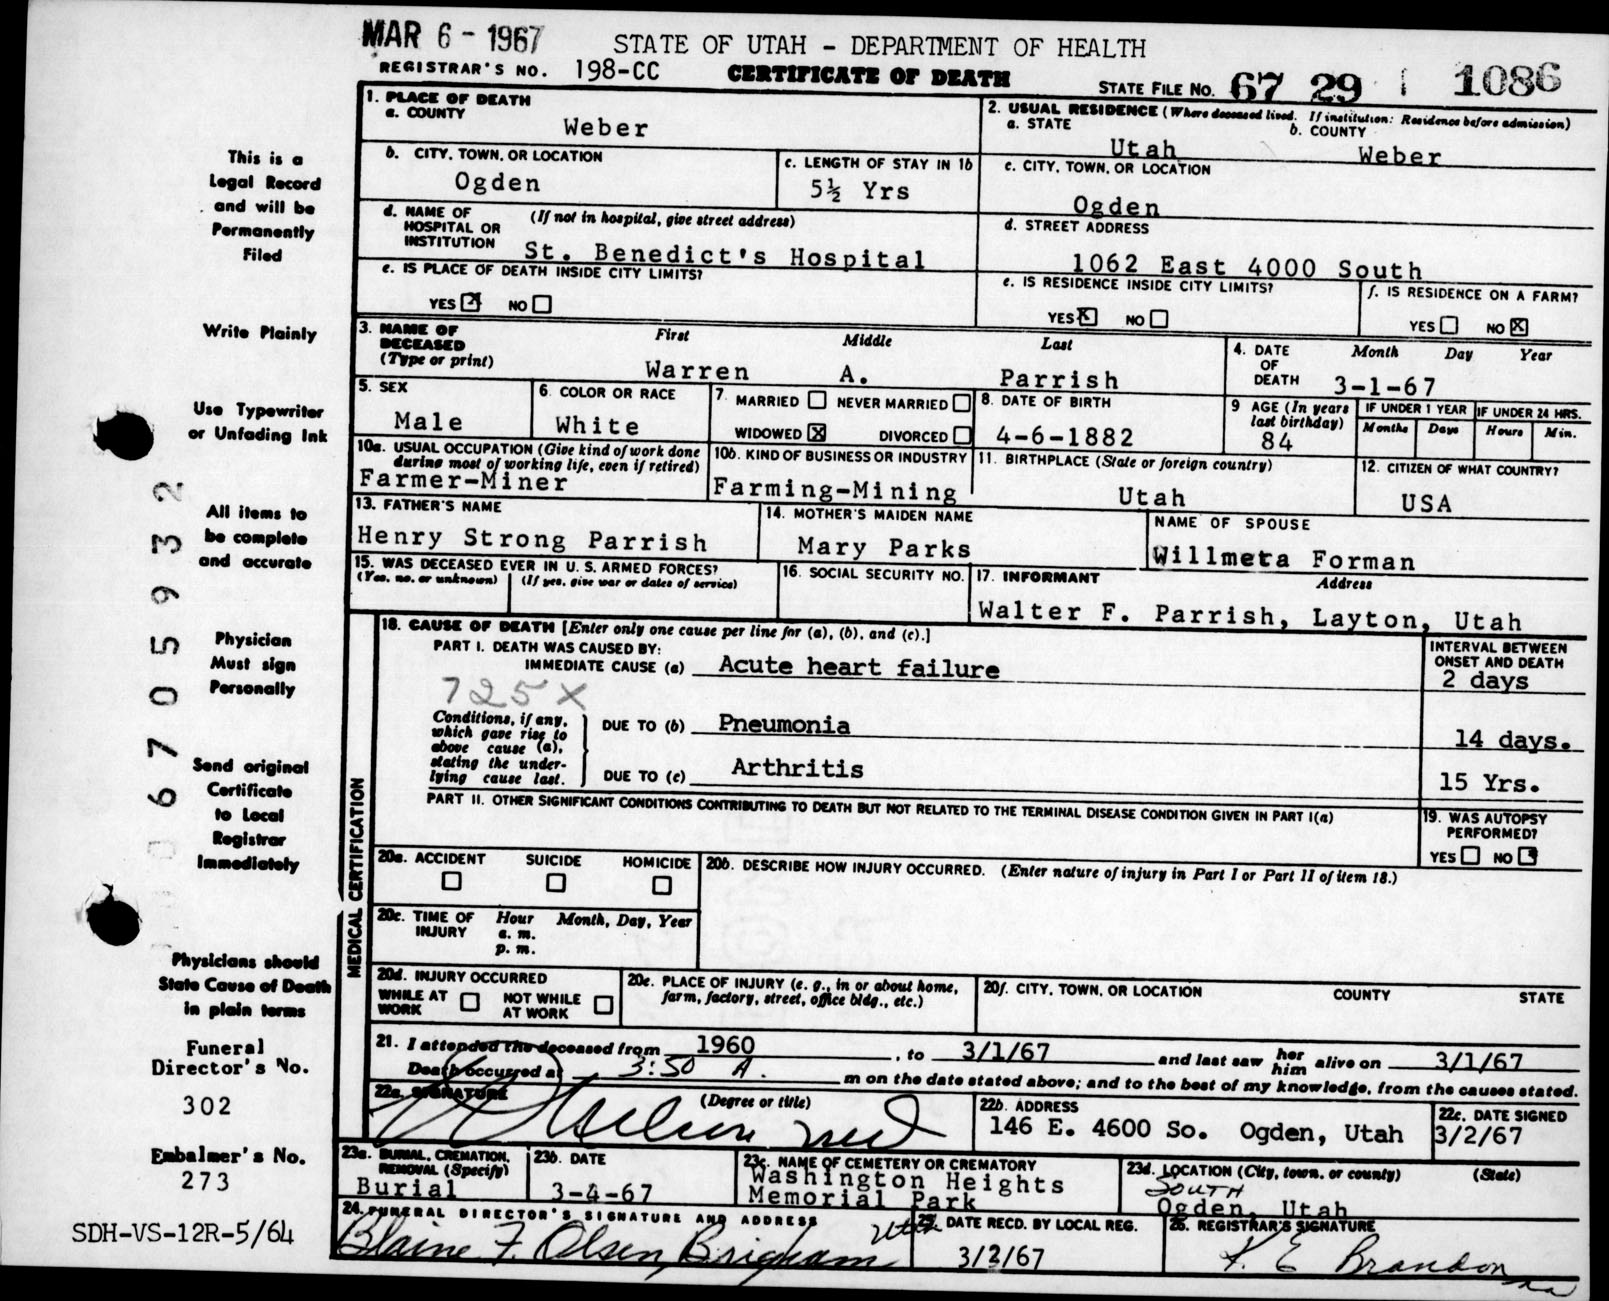 MAR 6 - 1967
STATE OF UTAH - DEPARTMENT OF HEALTH
REGISTRAR'S NO. 198-CC
CERTIFICATE OF DEATH
STATE FILE NO. 67 29 1086
This is a
Legal Record
and will be
Permanently
Filed
Write Plainly
Use Typewriter
or Unfading Ink
All items to
be complete
and accurate
Physician
Must sign
Personally
Send original
Certificate
to Local
Registrar
Immediately
Physicians should
State Cause of Death
in plain terms
Funeral
Director's No.
302
Embalmer's No.
273
SDH-VS-12R-5/64
06705932
1. PLACE OF DEATH
a. COUNTY
Weber
2. USUAL RESIDENCE (Where deceased lived. If institution: Residence before admission)
a. STATE
Utah
b. COUNTY
Weber
b. CITY, TOWN, OR LOCATION
Ogden
c. LENGTH OF STAY IN 1b
5½ Yrs
c. CITY, TOWN, OR LOCATION
Ogden
d. NAME OF HOSPITAL OR INSTITUTION
(If not in hospital, give street address)
St. Benedict's Hospital
d. STREET ADDRESS
1062 East 4000 South
e. IS PLACE OF DEATH INSIDE CITY LIMITS?
YES ☒ NO ☐
e. IS RESIDENCE INSIDE CITY LIMITS?
YES ☒ NO ☐
f. IS RESIDENCE ON A FARM?
YES ☐ NO ☒
3. NAME OF DECEASED
(Type or print)
First Middle Last
Warren A. Parrish
4. DATE OF DEATH
Month Day Year
3-1-67
5. SEX
Male
6. COLOR OR RACE
White
7. MARRIED ☐ NEVER MARRIED ☐
WIDOWED ☒ DIVORCED ☐
8. DATE OF BIRTH
4-6-1882
9 AGE (In years last birthday)
84
IF UNDER 1 YEAR
Months Days
IF UNDER 24 HRS.
Hours Min.
10a. USUAL OCCUPATION (Give kind of work done during most of working life, even if retired)
Farmer-Miner
10b. KIND OF BUSINESS OR INDUSTRY
Farming-Mining
11. BIRTHPLACE (State or foreign country)
Utah
12. CITIZEN OF WHAT COUNTRY?
USA
13. FATHER'S NAME
Henry Strong Parrish
14. MOTHER'S MAIDEN NAME
Mary Parks
NAME OF SPOUSE
Willmeta Forman
15. WAS DECEASED EVER IN U. S. ARMED FORCES?
(Yes, no, or unknown) (If yes, give war or dates of service)
16. SOCIAL SECURITY NO.
17. INFORMANT Address
Walter F. Parrish, Layton, Utah
MEDICAL CERTIFICATION
18. CAUSE OF DEATH [Enter only one cause per line for (a), (b), and (c).]
PART I. DEATH WAS CAUSED BY:
IMMEDIATE CAUSE (a) Acute heart failure
INTERVAL BETWEEN ONSET AND DEATH
2 days
725X
Conditions, if any, which gave rise to above cause (a), stating the underlying cause last.
DUE TO (b) Pneumonia
14 days.
DUE TO (c) Arthritis
15 Yrs.
PART II. OTHER SIGNIFICANT CONDITIONS CONTRIBUTING TO DEATH BUT NOT RELATED TO THE TERMINAL DISEASE CONDITION GIVEN IN PART I(a)
19. WAS AUTOPSY PERFORMED?
YES ☐ NO ☒
20a. ACCIDENT SUICIDE HOMICIDE
☐ ☐ ☐
20b. DESCRIBE HOW INJURY OCCURRED. (Enter nature of injury in Part I or Part II of item 18.)
20c. TIME OF INJURY
Hour Month, Day, Year
a. m.
p. m.
20d. INJURY OCCURRED
WHILE AT WORK ☐ NOT WHILE AT WORK ☐
20e. PLACE OF INJURY (e. g., in or about home, farm, factory, street, office bldg., etc.)
20f. CITY, TOWN, OR LOCATION COUNTY STATE
21. I attended the deceased from 1960, to 3/1/67 and last saw her him alive on 3/1/67
Death occurred at 3:50 A. m on the date stated above; and to the best of my knowledge, from the causes stated.
22a. SIGNATURE (Degree or title)
22b. ADDRESS
146 E. 4600 So. Ogden, Utah
22c. DATE SIGNED
3/2/67
23a. BURIAL, CREMATION, REMOVAL (Specify)
Burial
23b. DATE
3-4-67
23c. NAME OF CEMETERY OR CREMATORY
Washington Heights
Memorial Park
23d. LOCATION (City, town, or county) (State)
SOUTH
Ogden, Utah
24. FUNERAL DIRECTOR'S SIGNATURE AND ADDRESS
Blaine F. Olsen, Brigham Utah
25. DATE RECD. BY LOCAL REG.
3/2/67
26. REGISTRAR'S SIGNATURE
K. E Brandon